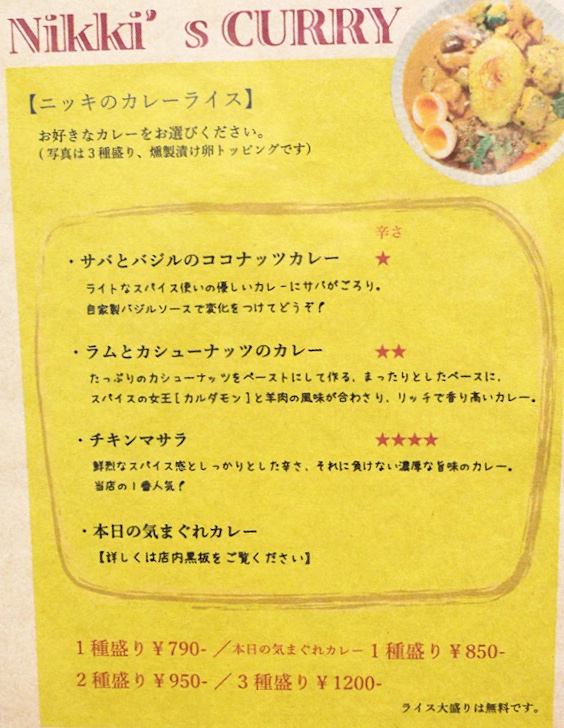 Nikki's CURRY
【ニッキのカレーライス】
お好きなカレーをお選びください。
(写真は3種盛り、燻製漬け卵トッピングです)
辛さ
・サバとバジルのココナッツカレー ★
ライトなスパイス使いの優しいカレーにサバがごろり。
自家製バジルソースで変化をつけてどうぞ!
・ラムとカシューナッツのカレー ★★
たっぷりのカシューナッツをペーストにして作る、まったりとしたベースに、
スパイスの女王[カルダモン]と羊肉の風味が合わさり、リッチで香り高いカレー。
・チキンマサラ ★★★★
鮮烈なスパイス感としっかりとした辛さ、それに負けない濃厚な旨味のカレー。
当店の1番人気!
・本日の気まぐれカレー
【詳しくは店内黒板をご覧ください】
1種盛り¥790- /本日の気まぐれカレー 1種盛り¥850-
2種盛り¥950- /3種盛り¥1200-
ライス大盛りは無料です。